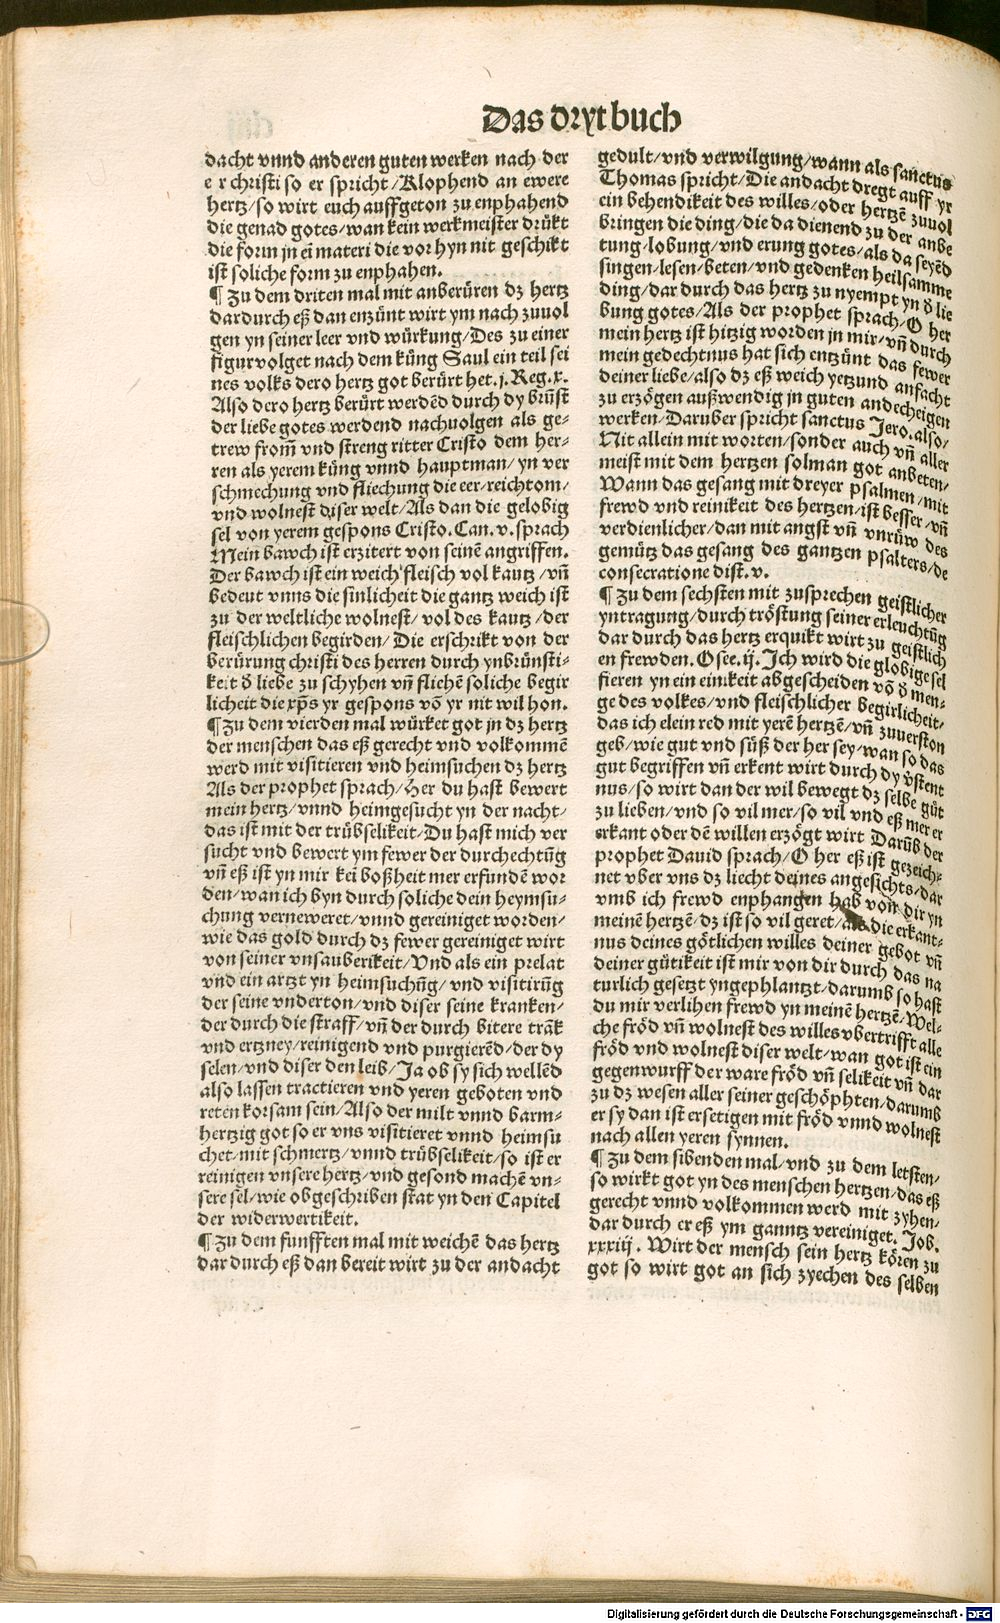 Das dryt buch
dacht vnnd anderen guten werken nach der
e r christi so er spricht/Klophend an ewere
hertz/so wirt euch auffgeton zu enphahend
die genad gotes/wan kein werkmeister drükt
die form jn ei materi die vor hyn nit geschikt
ist soliche form zu enphahen.
¶ Zu dem driten mal mit anberüren dz hertz
dardurch eß dan enzünt wirt ym nach zuuol
gen yn seiner leer vnd würkung/Des zu einer
figur volget nach dem küng Saul ein teil sei
nes volks dero hertz got berürt het.j.Reg.x.
Also dero hertz berürt werdēd durch dy brūst
der liebe gotes werdend nachuolgen als ge-
trew from̄ vnd streng ritter Cristo dem her-
ren als yerem küng vnnd hauptman/yn ver
schmechung vnd fliechung die eer/reichtom/
vnd wolnest diser welt/Als dan die gelobig
sel von yerem gespons Cristo.Can.v.sprach
Mein bawch ist erzitert von seinē angriffen.
Der bawch ist ein weich fleisch vol kautz/vn̄
bedeut vnns die sinlicheit die gantz weich ist
zu der weltliche wolnest/vol des kautz/der
fleischlichen begirden/Die erschrikt von der
berürung christi des herren durch ynbrünsti-
keit d̄ liebe zu schyhen vn̄ fliehē soliche begir
licheit die xp̄s yr gespons vō yr nit wil hon.
¶ Zu dem vierden mal würket got jn dz hertz
der menschen das eß gerecht vnd volkommē
werd mit visitieren vnd heimsuchen dz hertz
Als der prophet sprach/Her du hast bewert
mein hertz/vnnd heimgesucht yn der nacht/
das ist mit der trübselikeit/Du hast mich ver
sucht vnd bewert ym fewer der durchechtūg
vn̄ eß ist yn mir kei boßheit mer erfundē wor
den/wan ich byn durch soliche dein heymsu-
chung verneweret/vnnd gereiniget worden/
wie das gold durch dz fewer gereiniget wirt
von seiner vnsauberikeit/Vnd als ein prelat
vnd ein artzt yn heimsuchūg/vnd visitirūg
der seine vnderton/vnd diser seine kranken/
der durch die straff/vn̄ der durch bitere trāk
vnd ertzney/reinigend vnd purgierēd/der dy
selen/vnd diser den leib/Ja ob sy sich wellēd
also lassen tractieren vnd yeren geboten vnd
reten korsam sein/Also der milt vnnd barm-
hertzig got so er vns visitieret vnnd heimsu
chet/mit schmertz/vnnd trübselikeit/so ist er
reinigen vnsere hertz/vnd gesond machē vn-
sere sel/wie obgeschriben stat yn den Capitel
der widerwertikeit.
¶ Zu dem funfften mal mit weichē das hertz
dar durch eß dan bereit wirt zu der andacht
gedult/vnd verwilgung/wann als sanctus
Thomas spricht/Die andacht dregt auff yr
ein behendikeit des willes/oder hertzē zuuol
bringen die ding/die da dienend zu der anbe
tung/lobung/vnd erung gotes/als da seyēd
singen/lesen/beten/vnd gedenken heilsamme
ding/dar durch das hertz zu nyempt yn d̄ lie
bung gotes/Als der prophet sprach/O her
mein hertz ist hitzig worden jn mir/vn̄ durch
mein gedechtnus hat sich entzünt das fewer
deiner liebe/also dz eß weich yetzund anfacht
zu erzögen außwendig jn guten andecheigen
werken/Daruber spricht sanctus Jero.also/
Nit allein mit worten/sonder auch vn̄ aller
meist mit dem hertzen solman got anbeten/
Wann das gesang mit dreyer psalmen/mit
frewd vnd reinikeit des hertzen/ist besser/vn̄
verdienlicher/dan mit angst vn̄ vnrüw des
gemütz das gesang des gantzen psalters/de
consecratione dist.v.
¶ Zu dem sechsten mit zusprechen geistlicher
yntragung/durch tröstung seiner erleuchtūg
dar durch das hertz erquikt wirt zu geistlich
en frewden.Osee.ij.Ich wird die globige sel
fieren yn ein einikeit abgescheiden vō d̄ men-
ge des volkes/vnd fleischlicher begirlicheit/
das ich elein red mit yerē hertzē/vn̄ zuuerston
geb/wie gut vnd süß der her sey/wan so das
gut begriffen vn̄ erkent wirt durch dy v̄stent
nus/so wirt dan der wil bewegt dz selbe gūt
zu lieben/vnd so vil mer/so vil vnd eß mer er
erkant oder dē willen erzögt wirt Darūb der
prophet Dauid sprach/O her eß ist gezeich-
net vber vns dz liecht deines angesichts/dar
vmb ich frewd enphangen hab von dir yn
meinē hertzē/dz ist so vil geret/als die erkant-
nus deines götlichen willes deiner gebot vn̄
deiner gütikeit ist mir von dir durch das na
turlich gesetzt yngephlantzt/darumb so hast
du mir verlihen frewd yn meinē hertzē/Wel-
che fröd vn̄ wolnest des willes vbertrifft alle
fröd vnd wolnest diser welt/wan got ist ein
gegenwurff der ware fröd vn̄ selikeit vn̄ dar
zu dz wesen aller seiner geschöphten/darumb
er sy dan ist ersetigen mit fröd vnnd wolnest
nach allen yeren synnen.
¶ Zu dem sibenden mal/vnd zu dem letsten/
so wirkt got yn des menschen hertzen/das eß
gerecht vnnd volkommen werd mit zyhen/
dar durch er eß ym ganntz vereiniget. Job.
xxxiij. Wirt der mensch sein hertz kören zu
got so wirt got an sich zyechen des selben
Digitalisierung gefördert durch die Deutsche Forschungsgemeinschaft - DFG